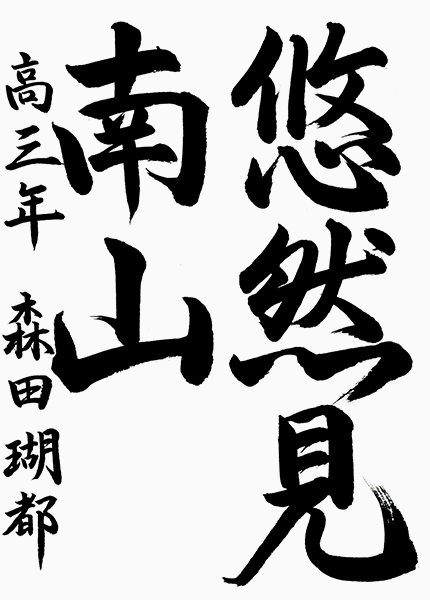 悠然見
南山
高三年 森田瑚都